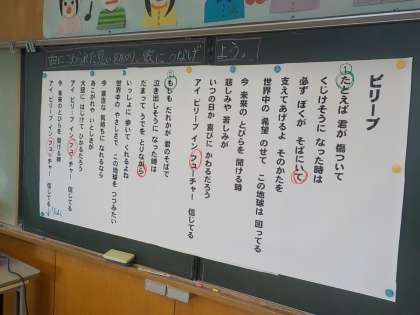 曲にこめられた思いを知り、歌につなげよう。
ビリーブ
①
たとえば 君が 傷ついて
くじけそうに なった時は
必ず ぼくが そばにいて
支えてあげるよ そのかたを
世界中の 希望 のせて この地球は 回ってる
今 未来の とびらを 開ける時
悲しみや 苦しみが
いつの日か 喜びに かわるだろう
アイ ビリーブ イン フューチャー 信じてる
②
もしも だれかが 君のそばで
泣き出しそうに なった時は
だまって うでを とりながら
いっしょに 歩いて くれるよね
世界中の やさしさで この地球を つつみたい
今 素直な 気持ちに なれるなら
あこがれや いとしさが
大空に はじけて ひかるだろう
アイ ビリーブ イン フューチャー 信じてる
今 未来の とびらを 開ける時
アイ ビリーブ イン フューチャー 信じてる